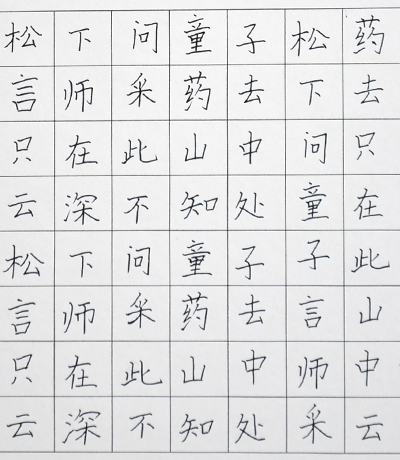 松下问童子松药
言师采药去下去
只在此山中问只
云深不知处童在
松下问童子子此
言师采药去言山
只在此山中师中
云深不知处采云